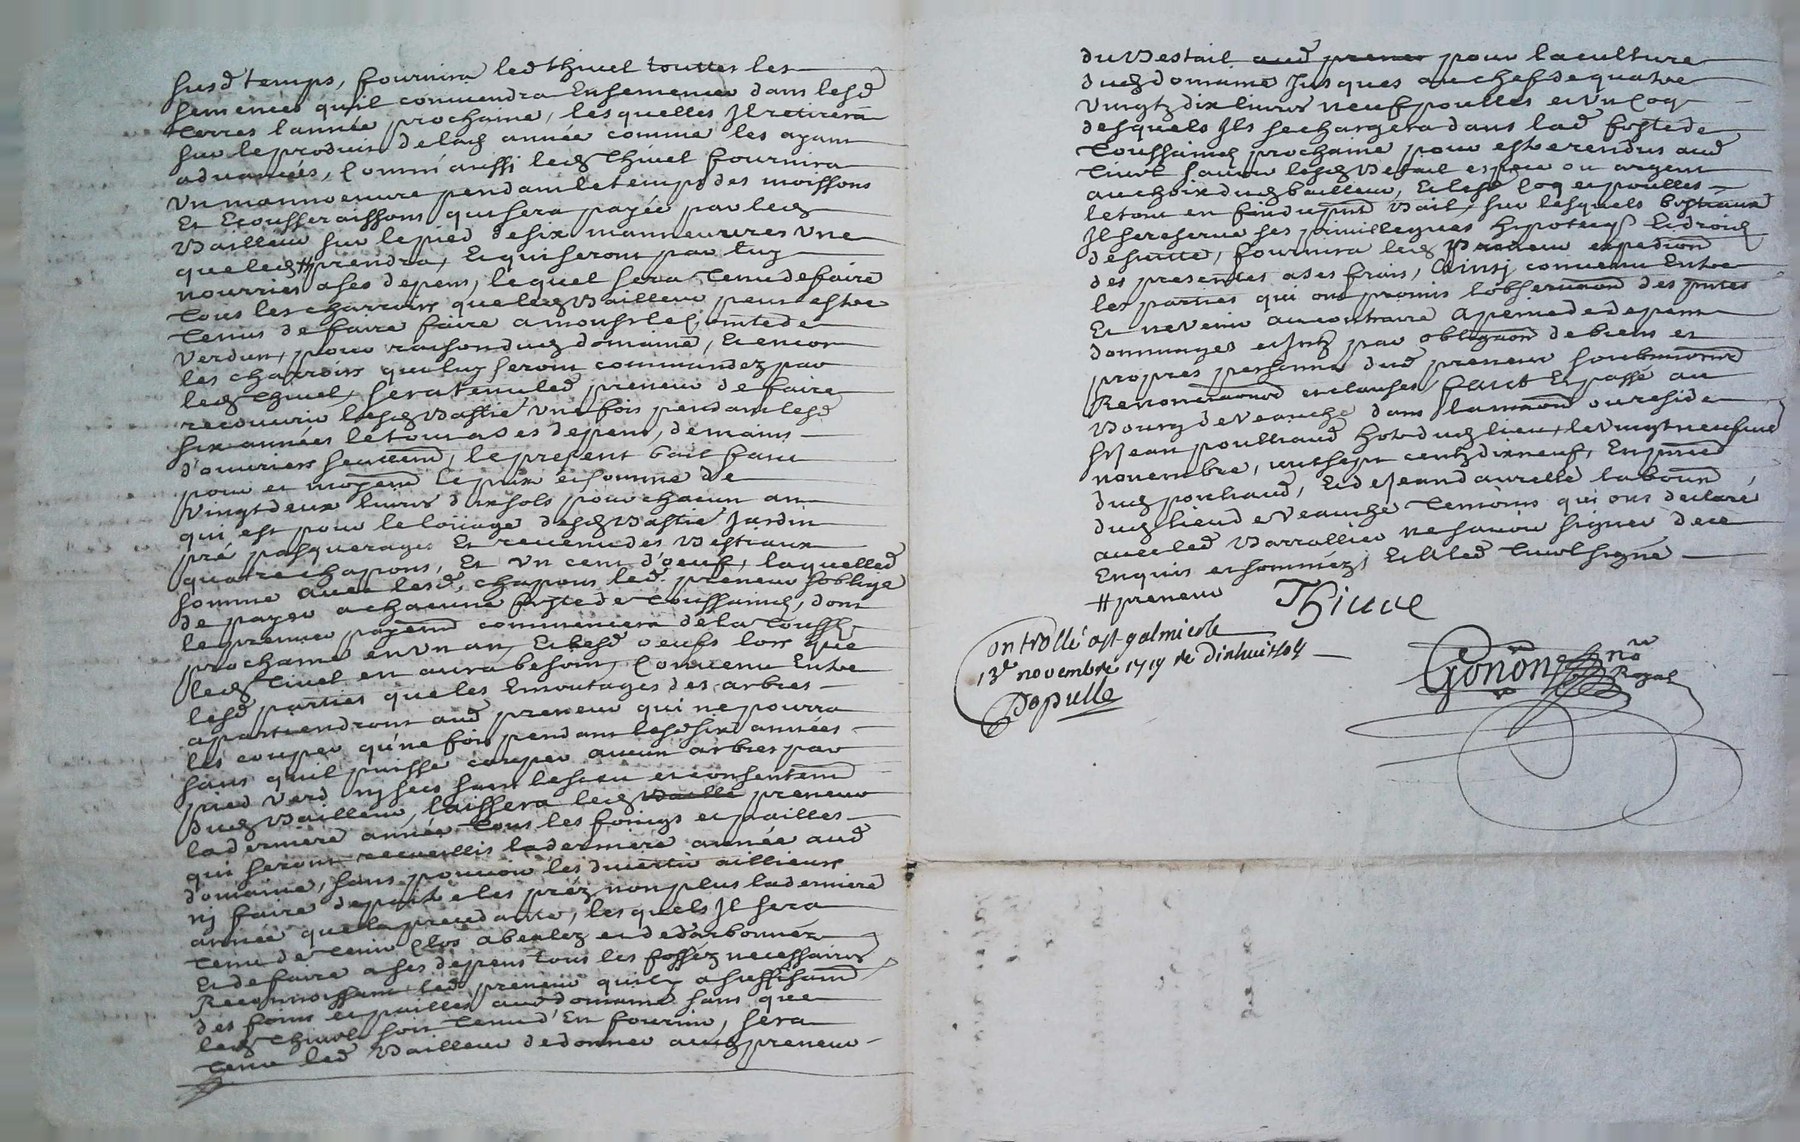 susd temps, fournira led thivel touttes les
semences quil conviendra Ensemencer dans lesd
terres l'année prochaine, lesquelles Il retirera
sur le produit de lad année comme les ayant
advancées, Comm'aussi led Thivel fournira
un manoeuvre pendant le temps des moissons
Et Ecousseraissons qui sera payée par led
Bailleur sur le pied de six manneuvres Une
que led # prendra, Et qui seront par luy
nourries a ses depens, lequel sera Tenu de faire
Tous les charrois que led Bailleur peut estre
Tenus de faire faire a monsr le Comte de
Verdun, pour raison dud domaine, Et encor
les charrois que luy seront commandez par
led Thivel, sera tenu led preneur de faire
recouvrir lesd Bastie Une fois pendant lesd
six années le tout a ses depens, de mains
d'ouvriers seulemt, le present bail faict
pour et moyent le prix et somme de
Vingt deux livres dix sols pour chacun an
qui est pour le louage desd Bastie Jardin
pré pasquerages Et revenu des Bestiaux
quatre chapons, Et Un cent d'oeuf, laquelle
somme avec lesd. chapons led. preneur soblige
de payer a chacune feste de Toussaincts, dont
le premier payemt commencera de la Toussts
prochaine en Un an, Et lesd oeufs lors que
led Tivel en aura besoin, Convenu Entre
lesd parties que les Emoutages des arbres
apartiendront aud preneur qui ne pourra
les couper qu'ne fois pendant lesd six années
sans quil puisse couper aucun arbres par
pied Verd ny secs sans lesceu et consentemt
dud Bailleur, laissera led preneur
la derniere année Tous les foings et pailles
qui seront recueillis la derniere année aud
domaine, sans pouvoir les divertir aillieurs
ny faire depaitre les préz non plus la derniere
année que la precedante, lesquels Il sera
tenu de Tenir Clos
Et de faire a ses depens tous les fossez necessaires
Reconnoissant led preneur quil y a suffisamt
des foins et pailles aud domaine sans que
led Thivel soit Tenu d'En fournir, sera
Tenu led Bailleur de donner aud preneur
du Bestail aud preneur pour la culture
dud domaine Jusques au chef de quatre
vingt dix livres neuf poulles et Un Coq
desquels Ils se chargera dans lad feste de
Toussaincts prochaine pour estre rendus aud
Tivel savoir lesd Bestail espece ou argent
au choix dud bailleur, Et lesd Coq et poulles
le tout en fin du pnt Bail, sur lesquels bestiaux
Il se reserve ses privilegues hipoteqs Et droict
de suitte, fournira led Preneur expedion
des presentes a ses frais, Ainsi convenu Entre
les parties qui ont promis lobservaon des pntes
Et ne Venir au contraire a peine de depens
dommages et Intz par obligaon de biens et
propres personne dud preneur soubmiond
Renonciaond et clauses, faict Et passé au
Bourg de Veauche dans la maison ou reside
Sr Jean poulhaud hote dud lieu, le Vingt neufvie
novembre, mil sept cent dix neuf, En pnce
dud poulhaud, Et de Jean d'aurelle labourr
dud lieu de Veauche Temoins qui ont declaré
avec led Barrallier ne savoir signer de ce
Enquis et sommez, Et led Tivel signé
# preneur
Thivel
Controllé a st galmier le
13e novembre 1719 re dixhuit sols
Depulle
Gonon no Royal